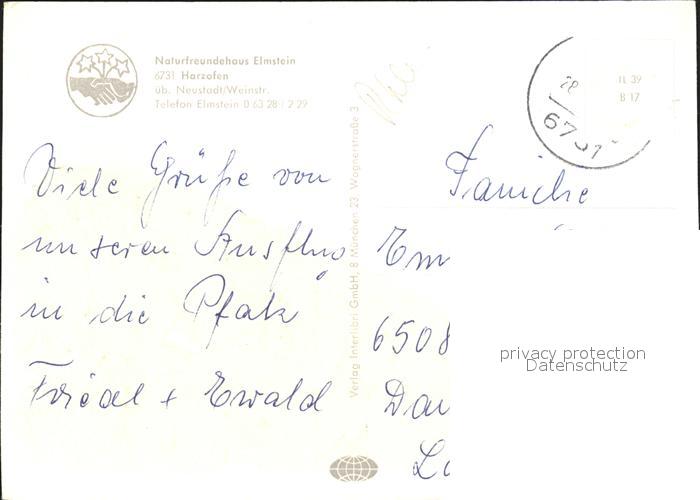 Naturfreundehaus Elmstein
6731 Harzofen
üb. Neustadt/Weinstr.
Telefon Elmstein 0 63 28 / 2 29
TL 39
B 17
28
6731
Viele Grüße von
unseren Ausflug
in die Pfalz
Friedel + Ewald
Verlag Interlibri GmbH, 8 München 23, Wagnerstraße 3
Familie
Em
6508
Dau
privacy protection
Datenschutz